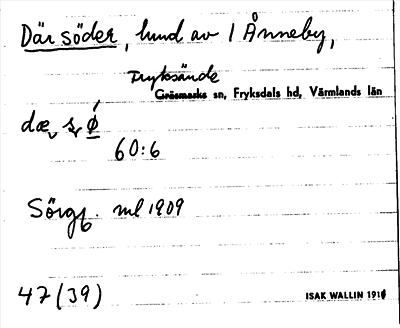 Där söder, hund av 1 Ånneby,
Fryksände
Gräsmarks sn, Fryksdals hd, Värmlands län
60:6
Sörgb. ml 1909
47 (39)
ISAK WALLIN 191